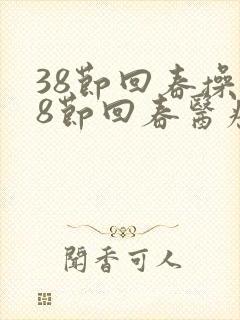 38節回春操
8節回春醫
聞香可人